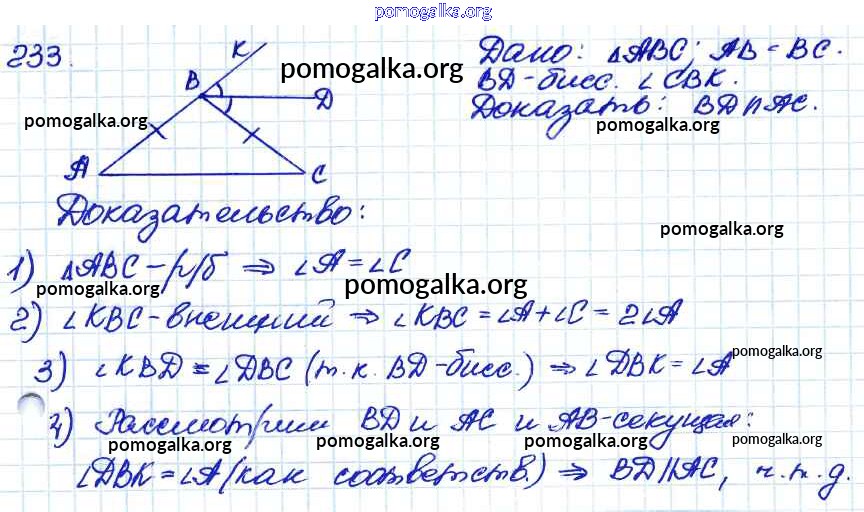 pomogalka.org
233.
K
B
D
A
C
pomogalka.org
pomogalka.org
Дано: △ABC; AB = BC.
BD - бисс. ∠CBK.
Доказать: BD || AC.
pomogalka.org
Доказательство:
pomogalka.org
1) △ABC - р/б ⇒ ∠A = ∠C
pomogalka.org
pomogalka.org
2) ∠KBC - внешний ⇒ ∠KBC = ∠A + ∠C = 2∠A
3) ∠KBD = ∠DBC (т.к. BD - бисс.) ⇒ ∠DBK = ∠A
pomogalka.org
4) Рассмотрим BD и AC и AB - секущая:
pomogalka.org
pomogalka.org
pomogalka.org
pomogalka.org
∠DBK = ∠A (как соответств.) ⇒ BD || AC, ч.т.д.